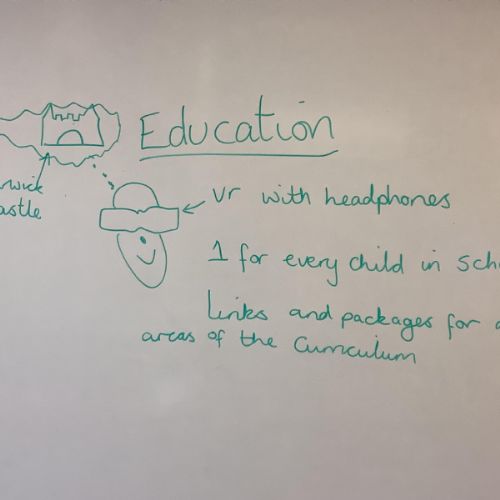 Education
rwick
astle
Vr with headphones
1 for every child in Scho
Links and packages for a
areas of the Curriculum